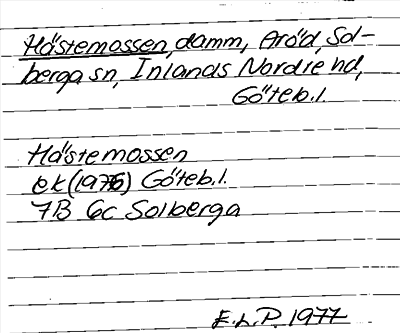 Hästemossen, damm, Aröd, Sol-
berga sn, Inlands Nordre hd,
Göteb.l.
Hästemossen
ek (1976) Göteb.l.
7B 6c Solberga
E.L.P. 1977